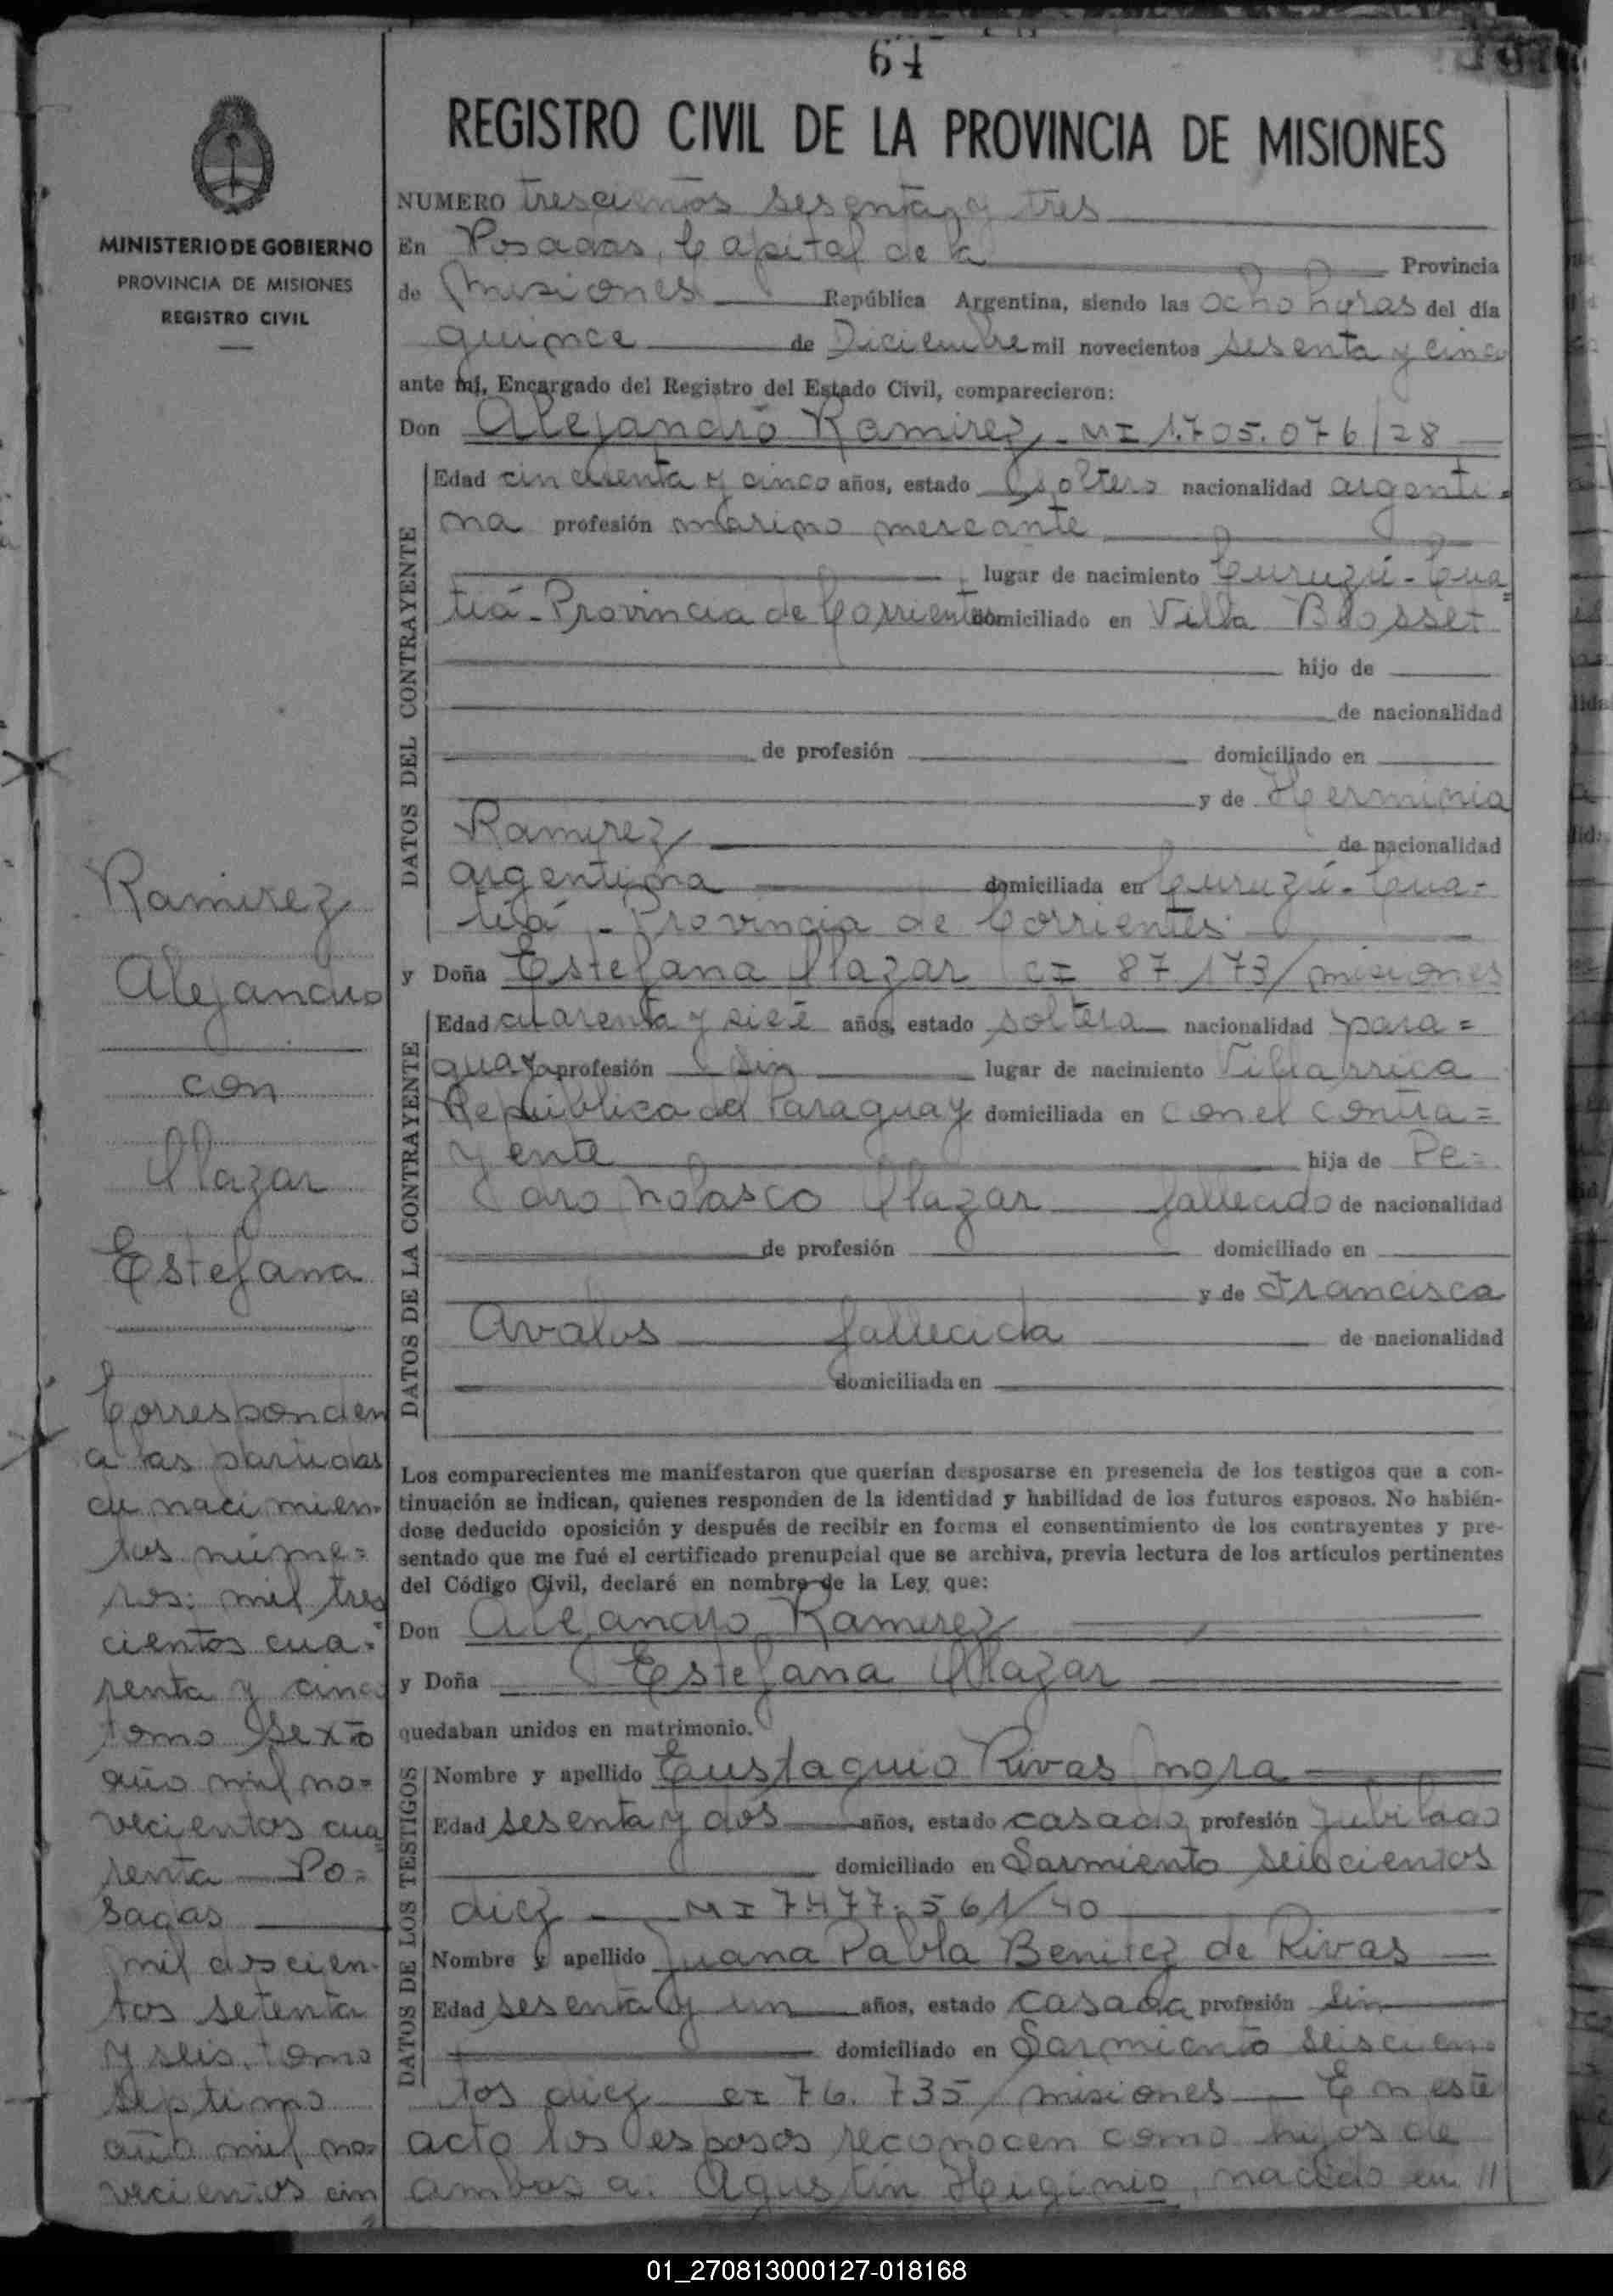 64
REGISTRO CIVIL DE LA PROVINCIA DE MISIONES
MINISTERIO DE GOBIERNO
PROVINCIA DE MISIONES
REGISTRO CIVIL
NUMERO trescientos sesenta y tres
En Posadas, Capital de la Provincia
de Misiones República Argentina, siendo las ocho horas del día
quince de Diciembre mil novecientos sesenta y cinco
ante mí, Encargado del Registro del Estado Civil, comparecieron:
Don Alejandro Ramirez - MI 1.705.076/28
DATOS DEL CONTRAYENTE
Edad cincuenta y cinco años, estado soltero nacionalidad argenti-
na profesión marino mercante
lugar de nacimiento Curuzú-Cua=
tiá - Provincia de Corrientes domiciliado en Villa Blosset
hijo de
de nacionalidad
de profesión domiciliado en
y de Herminia
Ramirez de nacionalidad
argentina domiciliada en Curuzú-Cua-
tiá - Provincia de Corrientes
y Doña Estefana Salazar CI 87.173/misiones
DATOS DE LA CONTRAYENTE
Edad cuarenta y siete años, estado soltera nacionalidad para=
guaya profesión sin lugar de nacimiento Villarrica
República del Paraguay domiciliada en con el contra=
yente hija de Pe=
dro Nolasco fallecido de nacionalidad
de profesión domiciliado en
y de Francisca
Avalos fallecida de nacionalidad
domiciliada en
Los comparecientes me manifestaron que querían desposarse en presencia de los testigos que a con-
tinuación se indican, quienes responden de la identidad y habilidad de los futuros esposos. No habién-
dose deducido oposición y después de recibir en forma el consentimiento de los contrayentes y pre-
sentado que me fué el certificado prenupcial que se archiva, previa lectura de los artículos pertinentes
del Código Civil, declaré en nombre de la Ley que:
Don Alejandro Ramirez
y Doña Estefana
quedaban unidos en matrimonio.
DATOS DE LOS TESTIGOS
Nombre y apellido Eustaquio Rivas Mora
Edad sesenta y dos años, estado casado profesión jubilado
domiciliado en Sarmiento seiscientos
diez - MI 7.477.561/40
Nombre y apellido Juana Pabla Benitez de Rivas
Edad sesenta y un años, estado casada profesión sin
domiciliado en Sarmiento seiscien=
tos diez CI 76.735/misiones - En este
acto los esposos reconocen como hijos de
ambos a: Agustín Higinio, nacido en
Ramirez
Alejandro
con
Estefana
Corresponden
a las partidas
de nacimien-
tos núme=
ros: mil tres
cientos cua=
renta y cinco
tomo sexto
año mil no=
vecientos cua
renta - Po=
sadas
mil doscien-
tos setenta
y seis, tomo
septimo
año mil no=
vecientos cin
01_270813000127-018168